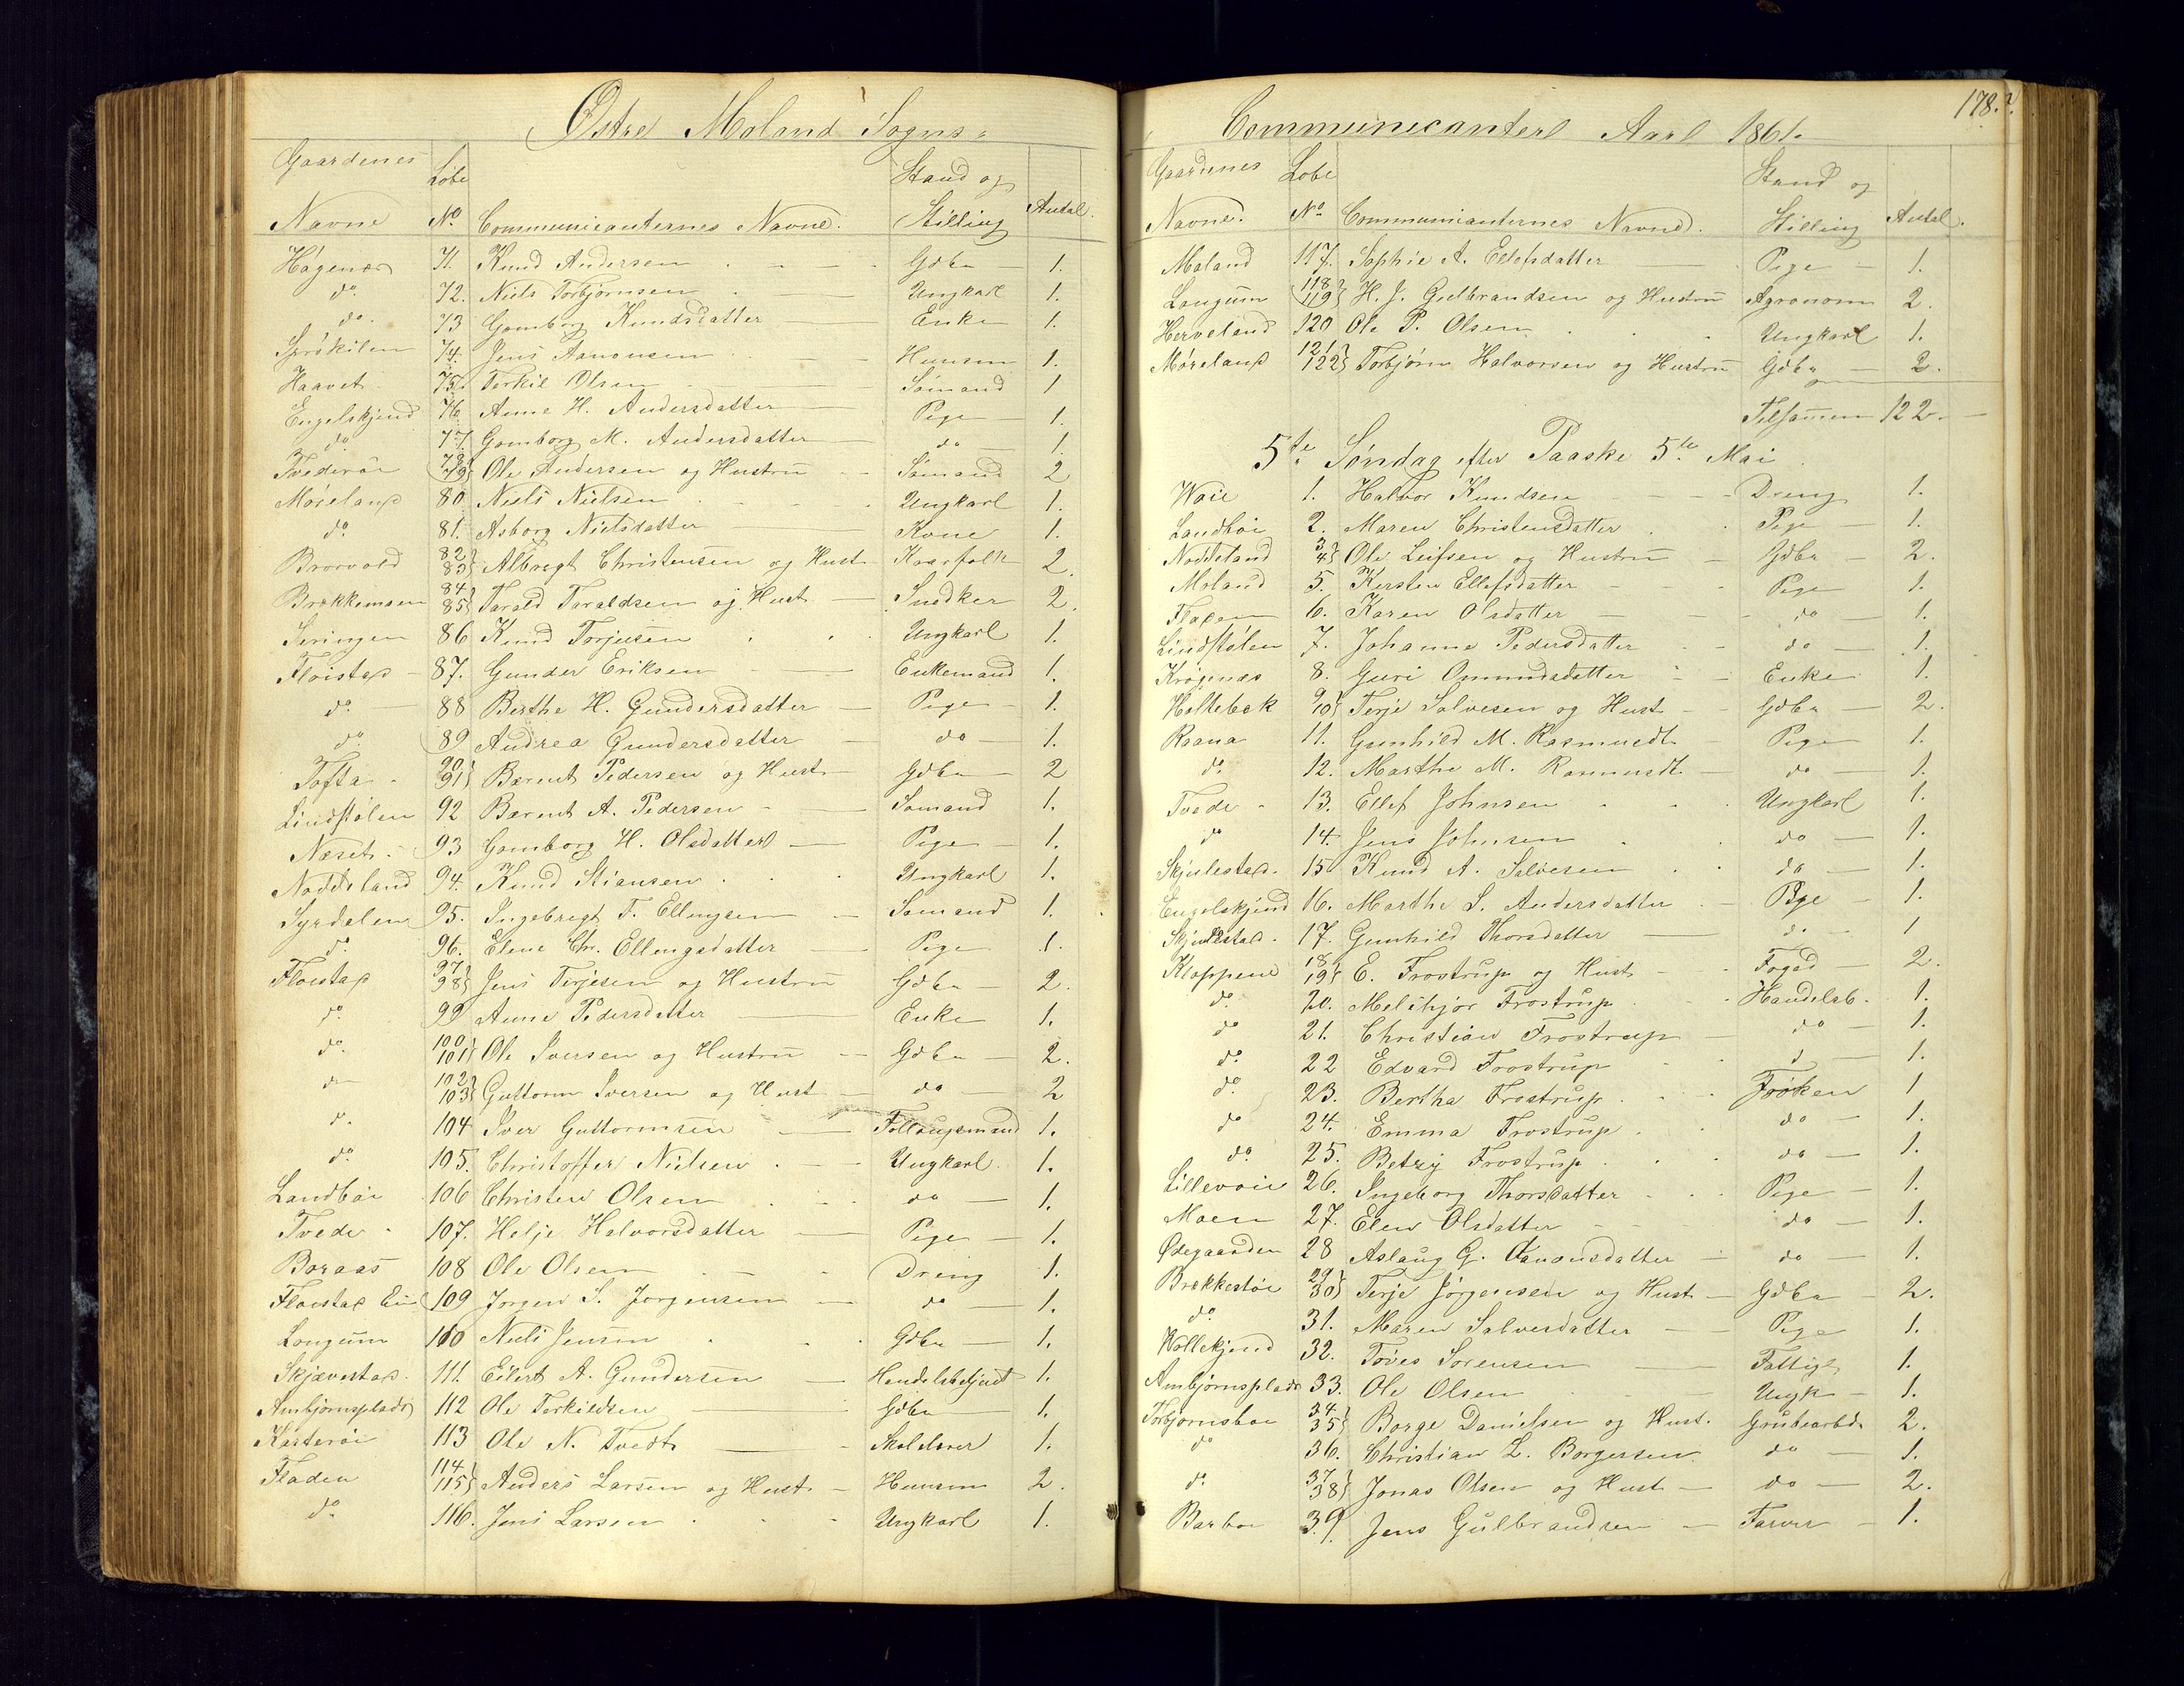 Østre Moland Sogns
Gaardenes Løbe Stand og
Navne No Communicanternes Navne. Stilling Antal.
Høgenæs 71. Knud Andersen Gdbr 1.
do. 72. Niels Torbjørnsen Ungkarl 1.
do. 73 Gomborg Knudsdatter Enke 1.
74. Jens Aanonsen Huusm 1.
Haavet 75. Terkil Olsen Sømand 1
Engelskjend 76 Anne H. Andersdatter Pige 1.
do 77. Gomborg M. Andersdatter do 1.
78 79} Ole Andersen og Hustru Sømand 2
Mørelans 80. Niels Nielsen Ungkarl 1.
do. 81. Asborg Nielsdatter Kone 1.
82 83} Albregt Christensen og Hust Kaarfolk 2.
Brækkemoen 84 85} Tarald Taraldsen og Hust Snedker 2.
Seringen 86 Knud Torjusen Ungkarl 1.
Fløistad 87. Gunder Eriksen Enkemand 1.
do. 88 Berthe H. Gundersdatter Pige 1.
do 89 Andrea Gundersdatter do 1.
Tofta 90 91} Bærent Pedersen og Hust Gdbr 2
Lindstølen 92 Bærent A. Pedersen Sømand 1.
Næset 93 Gomborg H. Olsdatter Pige 1.
Naddeland 94. Knud Stiansen Ungkarl 1.
Syrdalen 95. Ingebregt T. Ellingsen Sømand 1.
d. 96. Elene Chr. Ellingsdatter Pige 1.
Fløistad 97 98} Jens Terjesen og Hustru Gdbr 2.
do 99 Anne Pedersdatter Enke 1.
do. 100 101} Ole Iversen og Hustru Gdbr 2.
do 102 103} Guttorm Iversen og Hust do 2
do 104 Iver Guttormsen 1.
do. 105. Christoffer Nielsen Ungkarl 1.
Landbøe 106 Christen Olsen do 1.
Tvede 107. Helje Halvorsdatter Pige 1.
Boraas 108 Ole Olsen Dreng 1.
Fløistad 109 Jørgen S. Jørgensen do 1.
Longum 110 Niels Jensen Gdbr 1.
Skjævestad 111. Eilert A. Gundersen Handelsbetjent 1.
Arnbjørnsplads 112 Ole Terkildsen Gdbr 1.
113 Ole N. Tvedt Skolelærer 1.
Fladen 114 115} Anders Larsen og Hust Huusm 2.
do. 116. Jens Larsen Ungkarl 1.
Communicanter Aar 1861. 178.
Gaardenes Løbe Stand og
Navne. No Communicanternes Navne. Stilling Antal.
Moland 117. Sophie A. Ellefsdatter Pige 1.
Longum 118 119} H. J. Gulbrandsen og Hustru Agronom 2.
Herveland 120 Ole P. Olsen Ungkarl 1.
Mørelans 121 122} Torbjørn Halvorsen og Hustru Gdbr 2.
Tilsammen 122.
5te Søndag efter Paaske 5te Mai
Waie 1. Halvor Knudsen Dreng 1.
Landbøe 2. Maren Christensdatter Pige 1.
Naddeland 3 4} Ole Leifsen og Hustru Gdbr 2.
Moland 5. Kirsten Ellefsdatter Pige 1.
6. Karen Olsdatter do 1.
Lindstølen 7. Johanne Pedersdatter do 1.
Krøgenæs 8. Guri Omundsdatter Enke 1.
Holtebæk 9 10} Terje Salvesen og Hust Gdbr 2.
Raana 11. Gunhild M. Rasmusdt. Pige 1.
do. 12. Marthe M. Rasmusdt do 1.
Tvede 13. Ellef Johnsen Ungkarl 1.
do 14. Jens Johnsen do 1.
Skjulestad. 15 Knud A. Salvesen do 1.
Engelskjend 16. Marthe S. Andersdatter Pige 1.
Skjulestad. 17. Gunhild Thorsdatter do 1
Kloppene 18 19} E. Frostrup og Hust Foged 2.
do. 20. Melchjor Frostrup Handelsb. 1.
do 21. Christian Frostrup do 1.
do. 22 Edvard Frostrup d 1.
do. 23. Bertha Frostrup Frøken 1
do 24. Emma Frostrup do 1.
do. 25. Betzy Frostrup do 1.
Lillevaie 26. Ingeborg Thorsdatter Pige 1.
Moen 27. Elen Olsdatter do 1.
Ødegaarden 28 Aslaug G. Aanonsdatter do 1.
Brækkestøe 29 30} Terje Jørgensen og Hust Gdbr 2.
do. 31. Maren Salvesdatter Pige 1.
Vollekjend 32. Tøves Sørensen Fattigl 1.
Arnbjørnsplads 33. Ole Olsen Ungk 1.
Torbjørnsbu 34 35} Børge Danielsen og Hust. Grubearbd. 2.
do 36. Christian L. Børgersen do 1.
do. 37 38} Jonas Olsen og Hust do 2.
Barbu 39. Jens Gulbrandsen Farver 1.